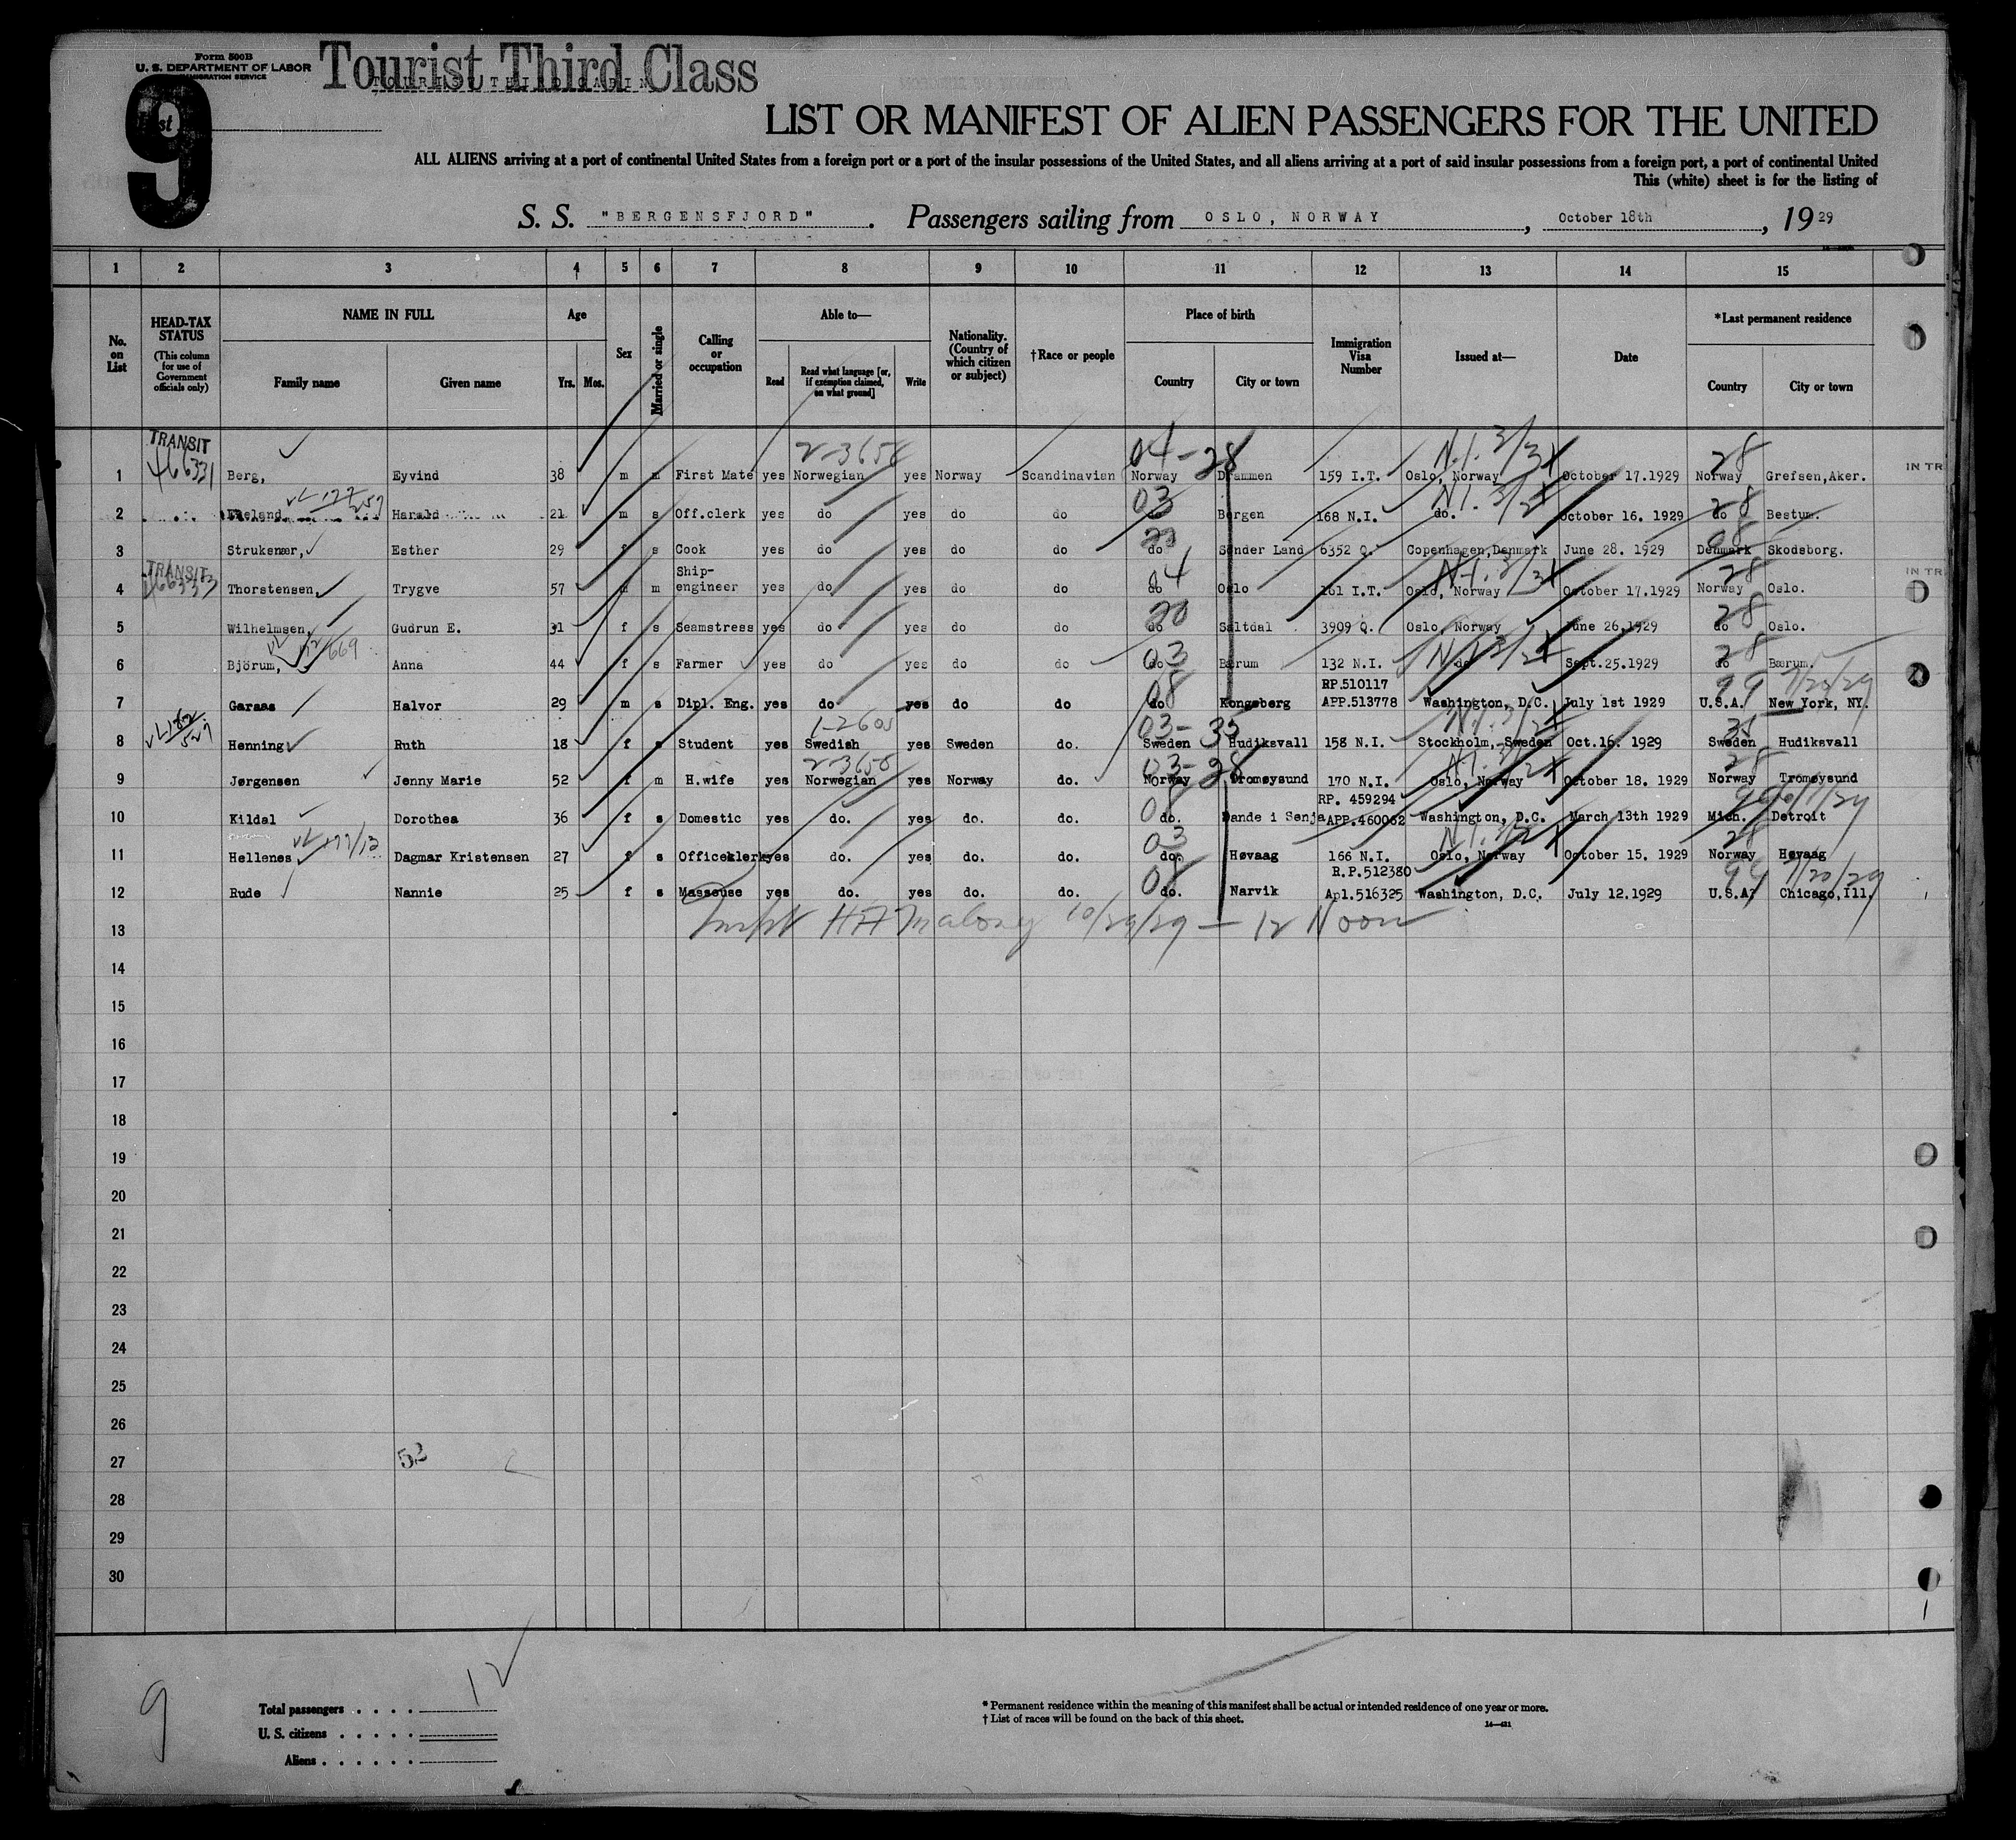 Form 500B
U. S. DEPARTMENT OF LABOR
IMMIGRATION SERVICE
Tourist Third Class
TOURIST THIRD CABIN
9
LIST OR MANIFEST OF ALIEN PASSENGERS FOR THE UNITED
ALL ALIENS arriving at a port of continental United States from a foreign port or a port of the insular possessions of the United States, and all aliens arriving at a port of said insular possessions from a foreign port, a port of continental United
This (white) sheet is for the listing of
S. S. "BERGENSFJORD". Passengers sailing from OSLO, NORWAY, October 18th, 1929
1 2 3 4 5 6 7 8 9 10 11 12 13 14 15
No. on List
HEAD-TAX STATUS
(This column for use of Government officials only)
NAME IN FULL
Family name Given name
Age
Yrs. Mos.
Sex
Married or single
Calling or occupation
Able to—
Read Read what language [or, if exemption claimed, on what ground] Write
Nationality. (Country of which citizen or subject)
†Race or people
Place of birth
Country City or town
Immigration Visa Number
Issued at—
Date
*Last permanent residence
Country City or town
TRANSIT 2-3650 04-28 N.I. 3/31 28
1 466331 Berg, Eyvind 38 m m First Mate yes Norwegian yes Norway Scandinavian Norway Drammen 159 I.T. Oslo, Norway October 17.1929 Norway Grefsen,Aker. IN TR
2 Harald 21 m s Off.clerk yes do yes do do do Bergen 168 N.I. do. October 16. 1929 do Bestum.
3 Struksnær, Esther 29 f s Cook yes do yes do do do Sønder Land 6352 Q. Copenhagen,Denmark June 28. 1929 Denmark Skodsborg.
TRANSIT
4 466333 Thorstensen, Trygve 57 m m Ship-engineer yes do yes do do do Oslo 161 I.T. Oslo, Norway October 17.1929 Norway Oslo. IN TR
5 Wilhelmsen, Gudrun E. 31 f s Seamstress yes do yes do do do Saltdal 3909 Q. Oslo, Norway June 26.1929 do Oslo.
6 Björum, Anna 44 f s Farmer yes do yes do do do Bærum 132 N.I. do Sept.25.1929 do Bærum.
RP.510117
7 Garaas Halvor 29 m s Dipl. Eng. yes do yes do do do Kongsberg APP.513778 Washington, D.C. July 1st 1929 U.S.A. New York, NY.
8 Henning Ruth 18 f s Student yes Swedish yes Sweden do. Sweden Hudiksvall 158 N.I. Stockholm, Sweden Oct.16. 1929 Sweden Hudiksvall
9 Jørgensen Jenny Marie 52 f m H.wife yes Norwegian yes Norway do. Norway Tromøysund 170 N.I. Oslo, Norway October 18. 1929 Norway Tromøysund
RP. 459294
10 Kildal Dorothea 36 f s Domestic yes do. yes do. do. do. Sande i Senja APP.460062 Washington, D.C. March 13th 1929 Mich. Detroit
11 Hellenes Dagmar Kristensen 27 f s Officeklerk yes do. yes do. do. do. Høvaag 166 N.I. Oslo, Norway October 15. 1929 Norway Høvaag
R.P.512380
12 Rude Nannie 25 f s Masseuse yes do. yes do. do. do. Narvik Apl.516325 Washington, D.C. July 12.1929 U.S.A. Chicago,Ill.
10/29/29 — 12 Noon
13
14
15
16
17
18
19
20
21
22
23
24
25
26
27 52
28
29
30
9
Total passengers . . . . 12
U. S. citizens . . . . .
Aliens . . . . . .
* Permanent residence within the meaning of this manifest shall be actual or intended residence of one year or more.
† List of races will be found on the back of this sheet.